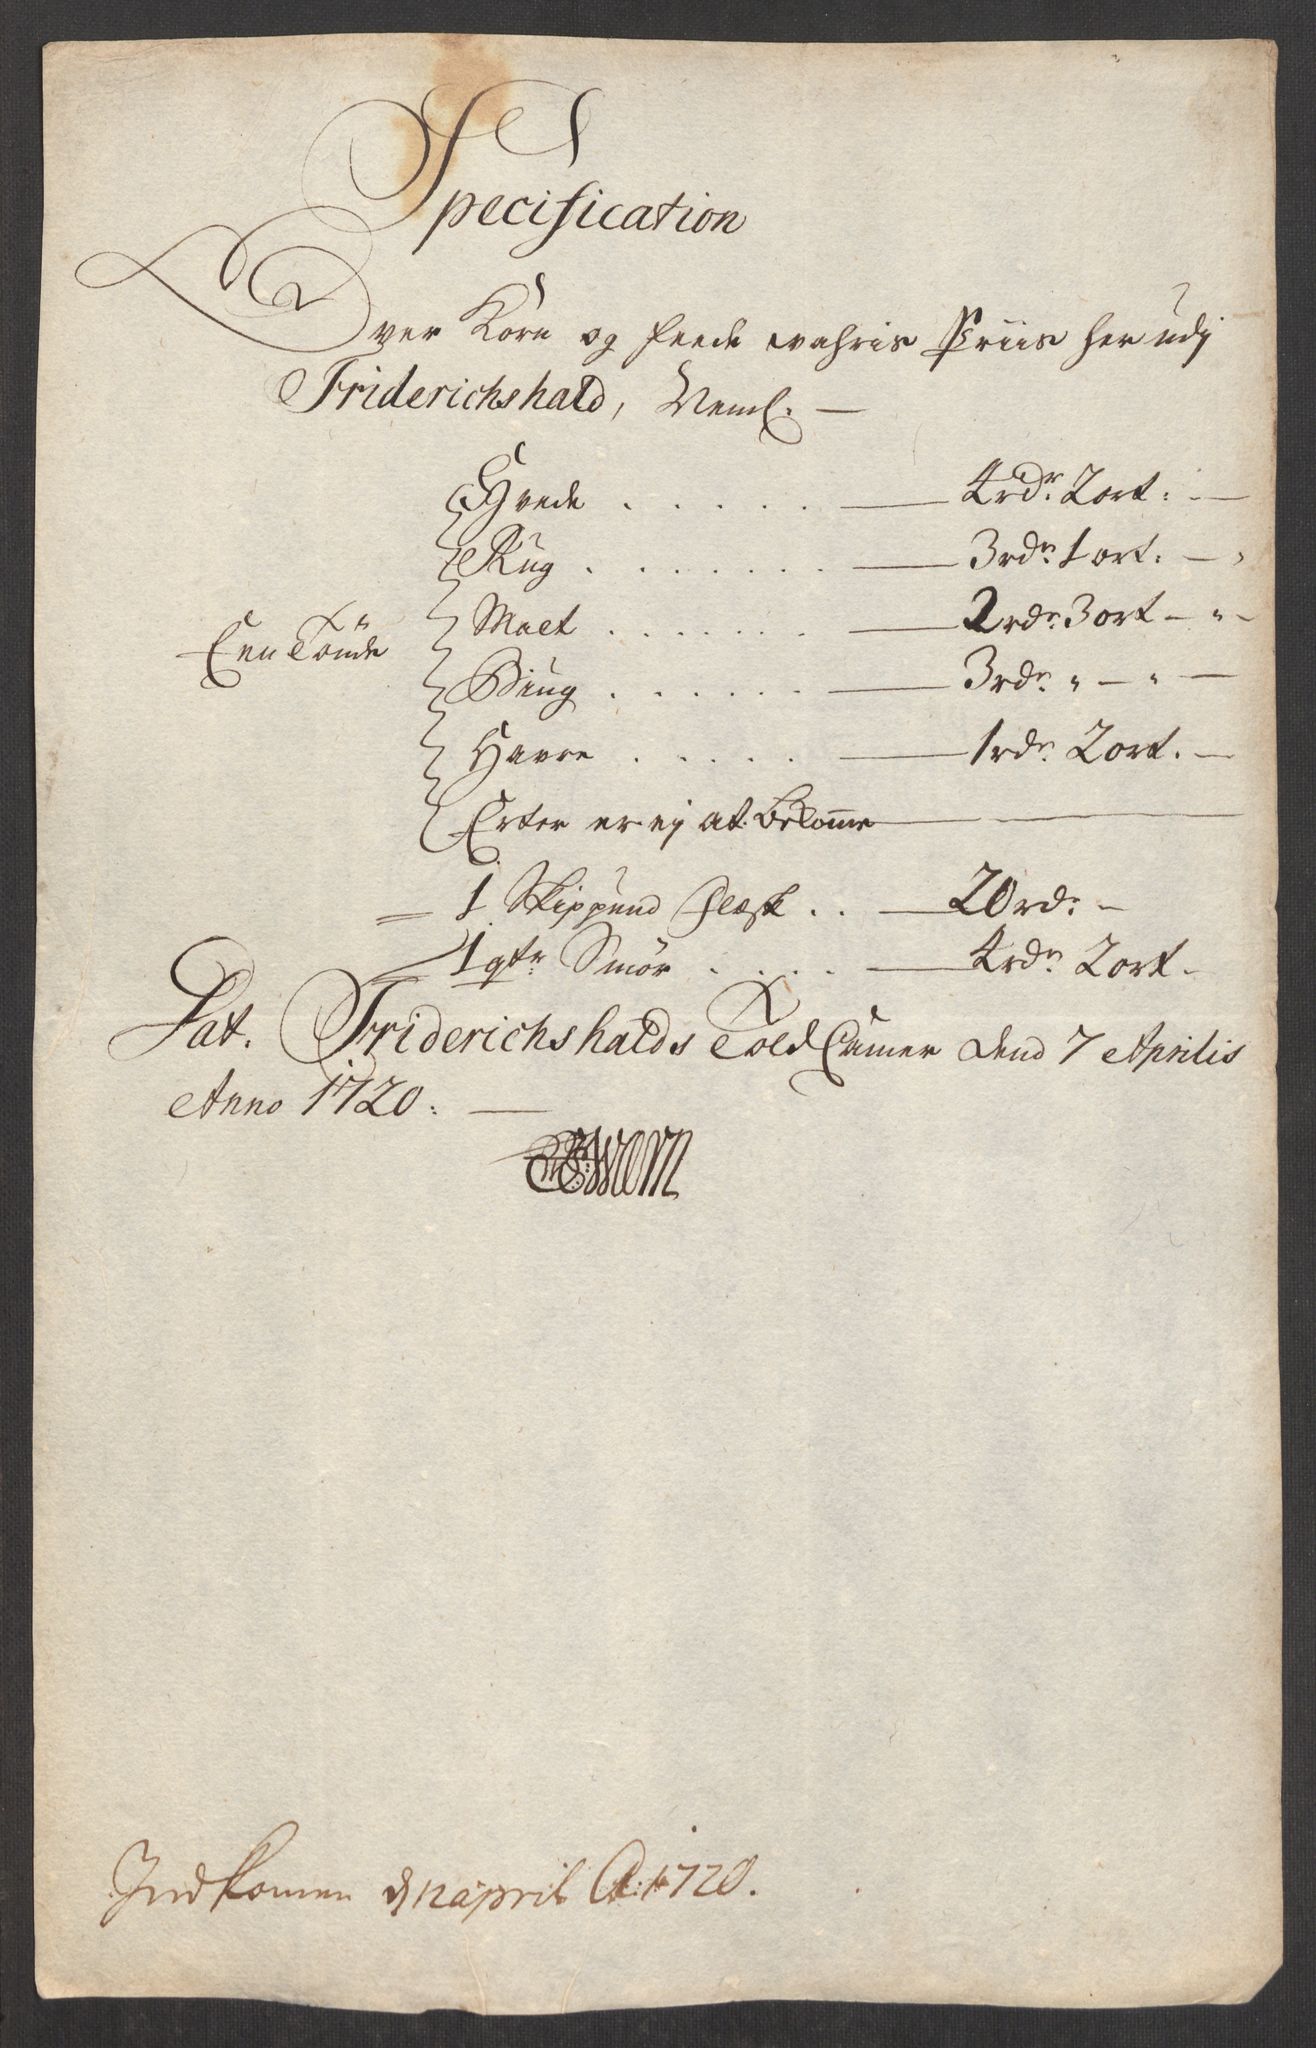 Specification
Over Korn og feede wahris Priis her udj
Friderichshald, Neml. —
Hvede . . . . . — 4 rdr. 2 ort. —
Rug . . . . . . — 3 rdr. 1 ort. — "
Een Tönde
Malt . . . . . . — 2 rdr. 3 ort — " —
Biug . . . . . — 3 rdr. " — " —
Havre . . . . . — 1 rdr. 2 ort. —
Erter er ej at bekomme —
1 Skippund Flæsk . . — 20 rdr. —
1 qtr. Smör . . . . — 4 rdr. 2 ort —
Dat. Friderichshalds Told Camer dend 7 Aprilis
Anno 1720. —
Indkomen d 12 april A: 1720.